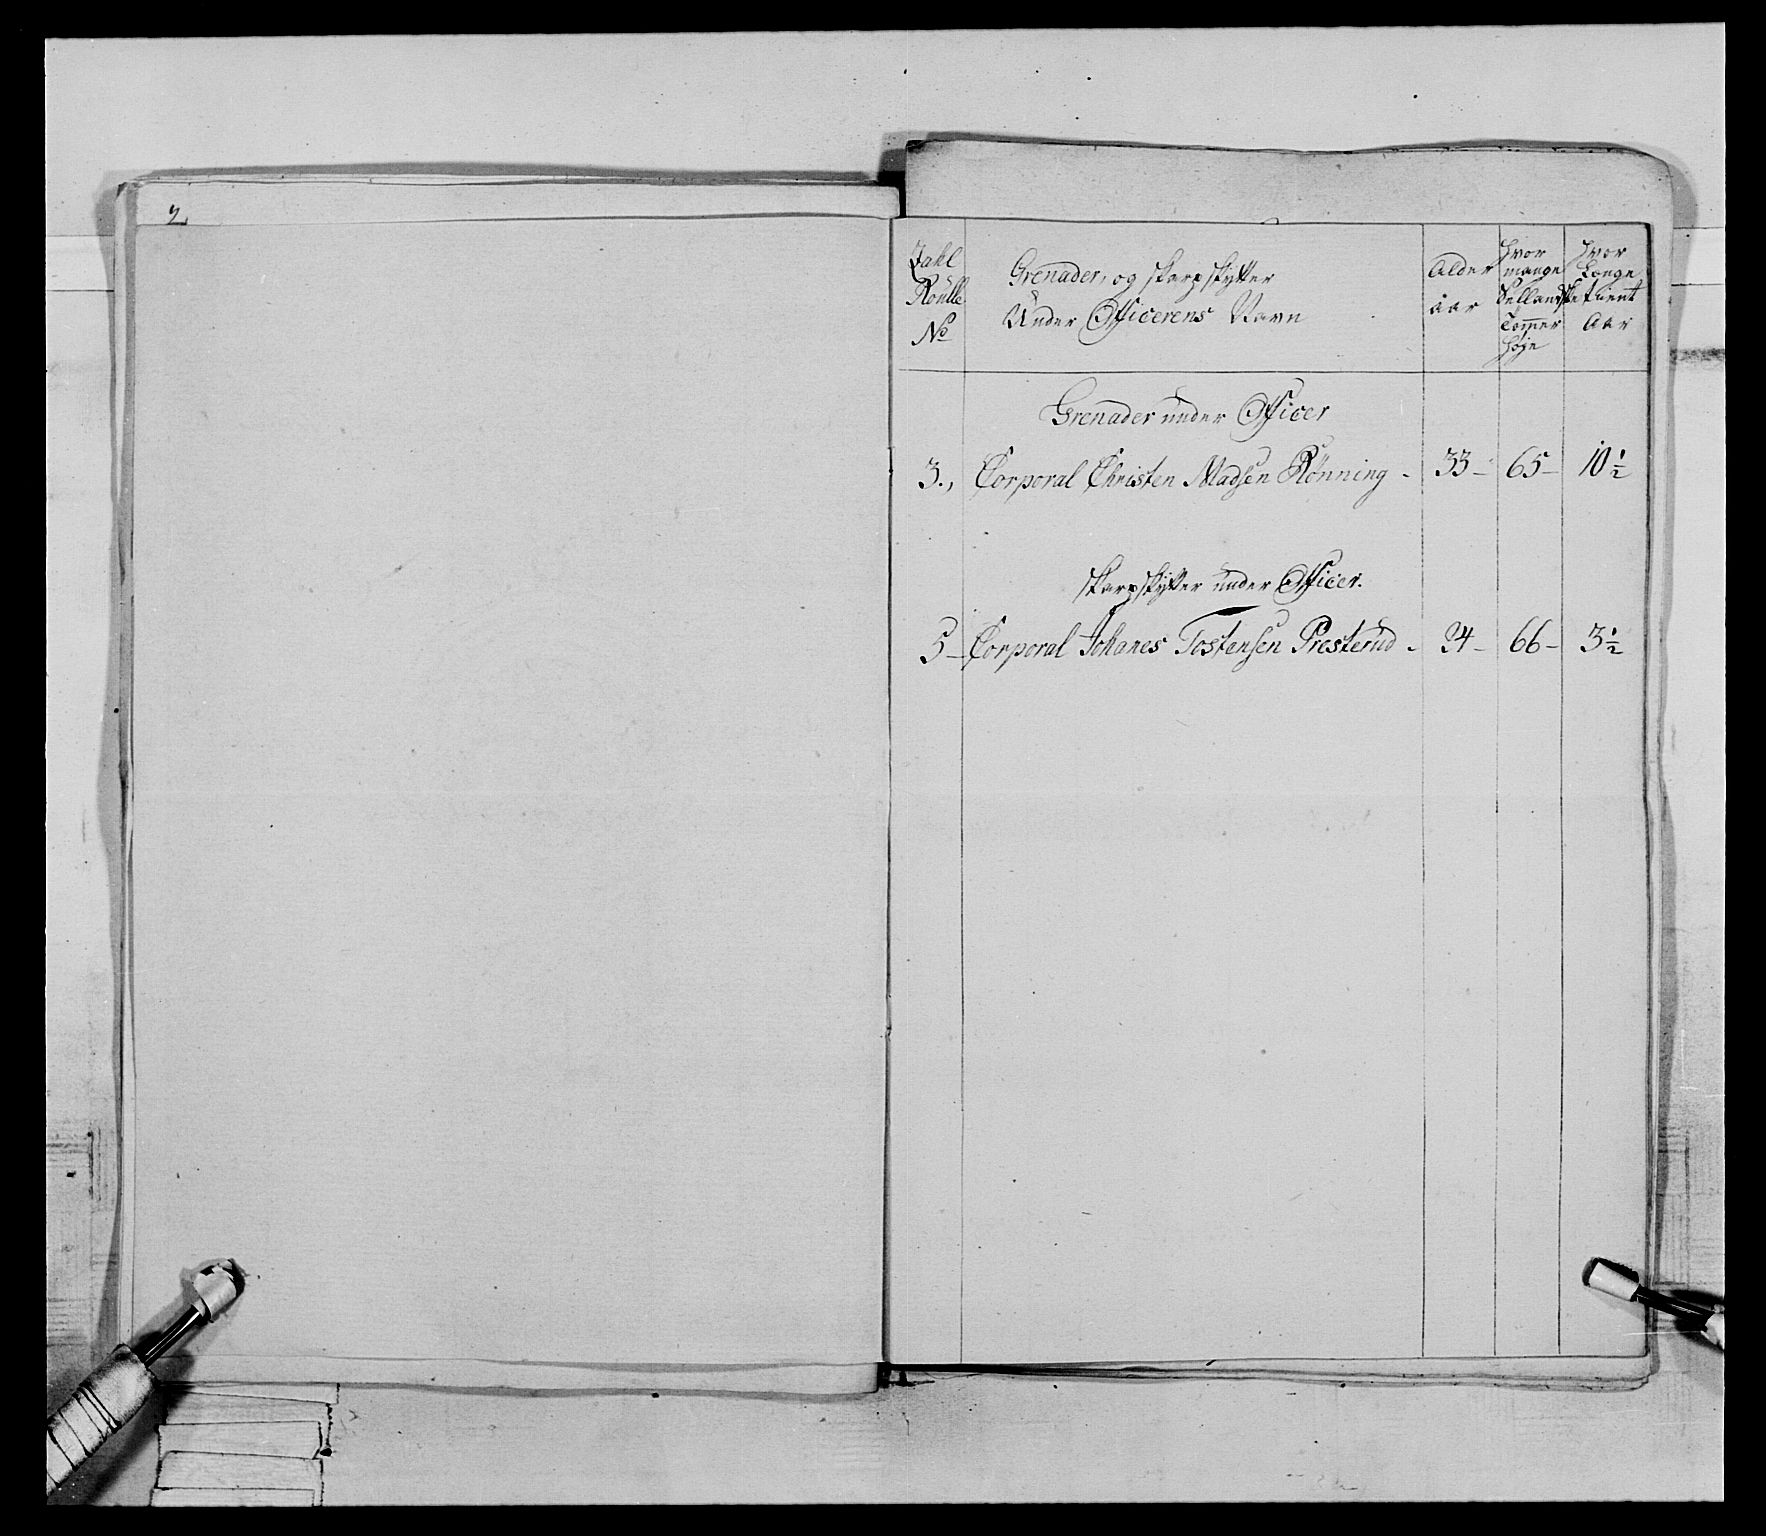 2
Tahl
Roulle
No
Grenader, og skarpskytter
Under Officerens Navn
Alder
aar
Hvor
mange
Sellands
Tommer
høje
Hvor
Længe
tient
Aar
Grenader under Officer
3., Corporal Christen Madsen Rønning - 33 - 65 - 10 1/2
skarpskytter under Officer.
5 - Corporal Johanes Tostensen Presterud - 24 - 66 - 3 1/2